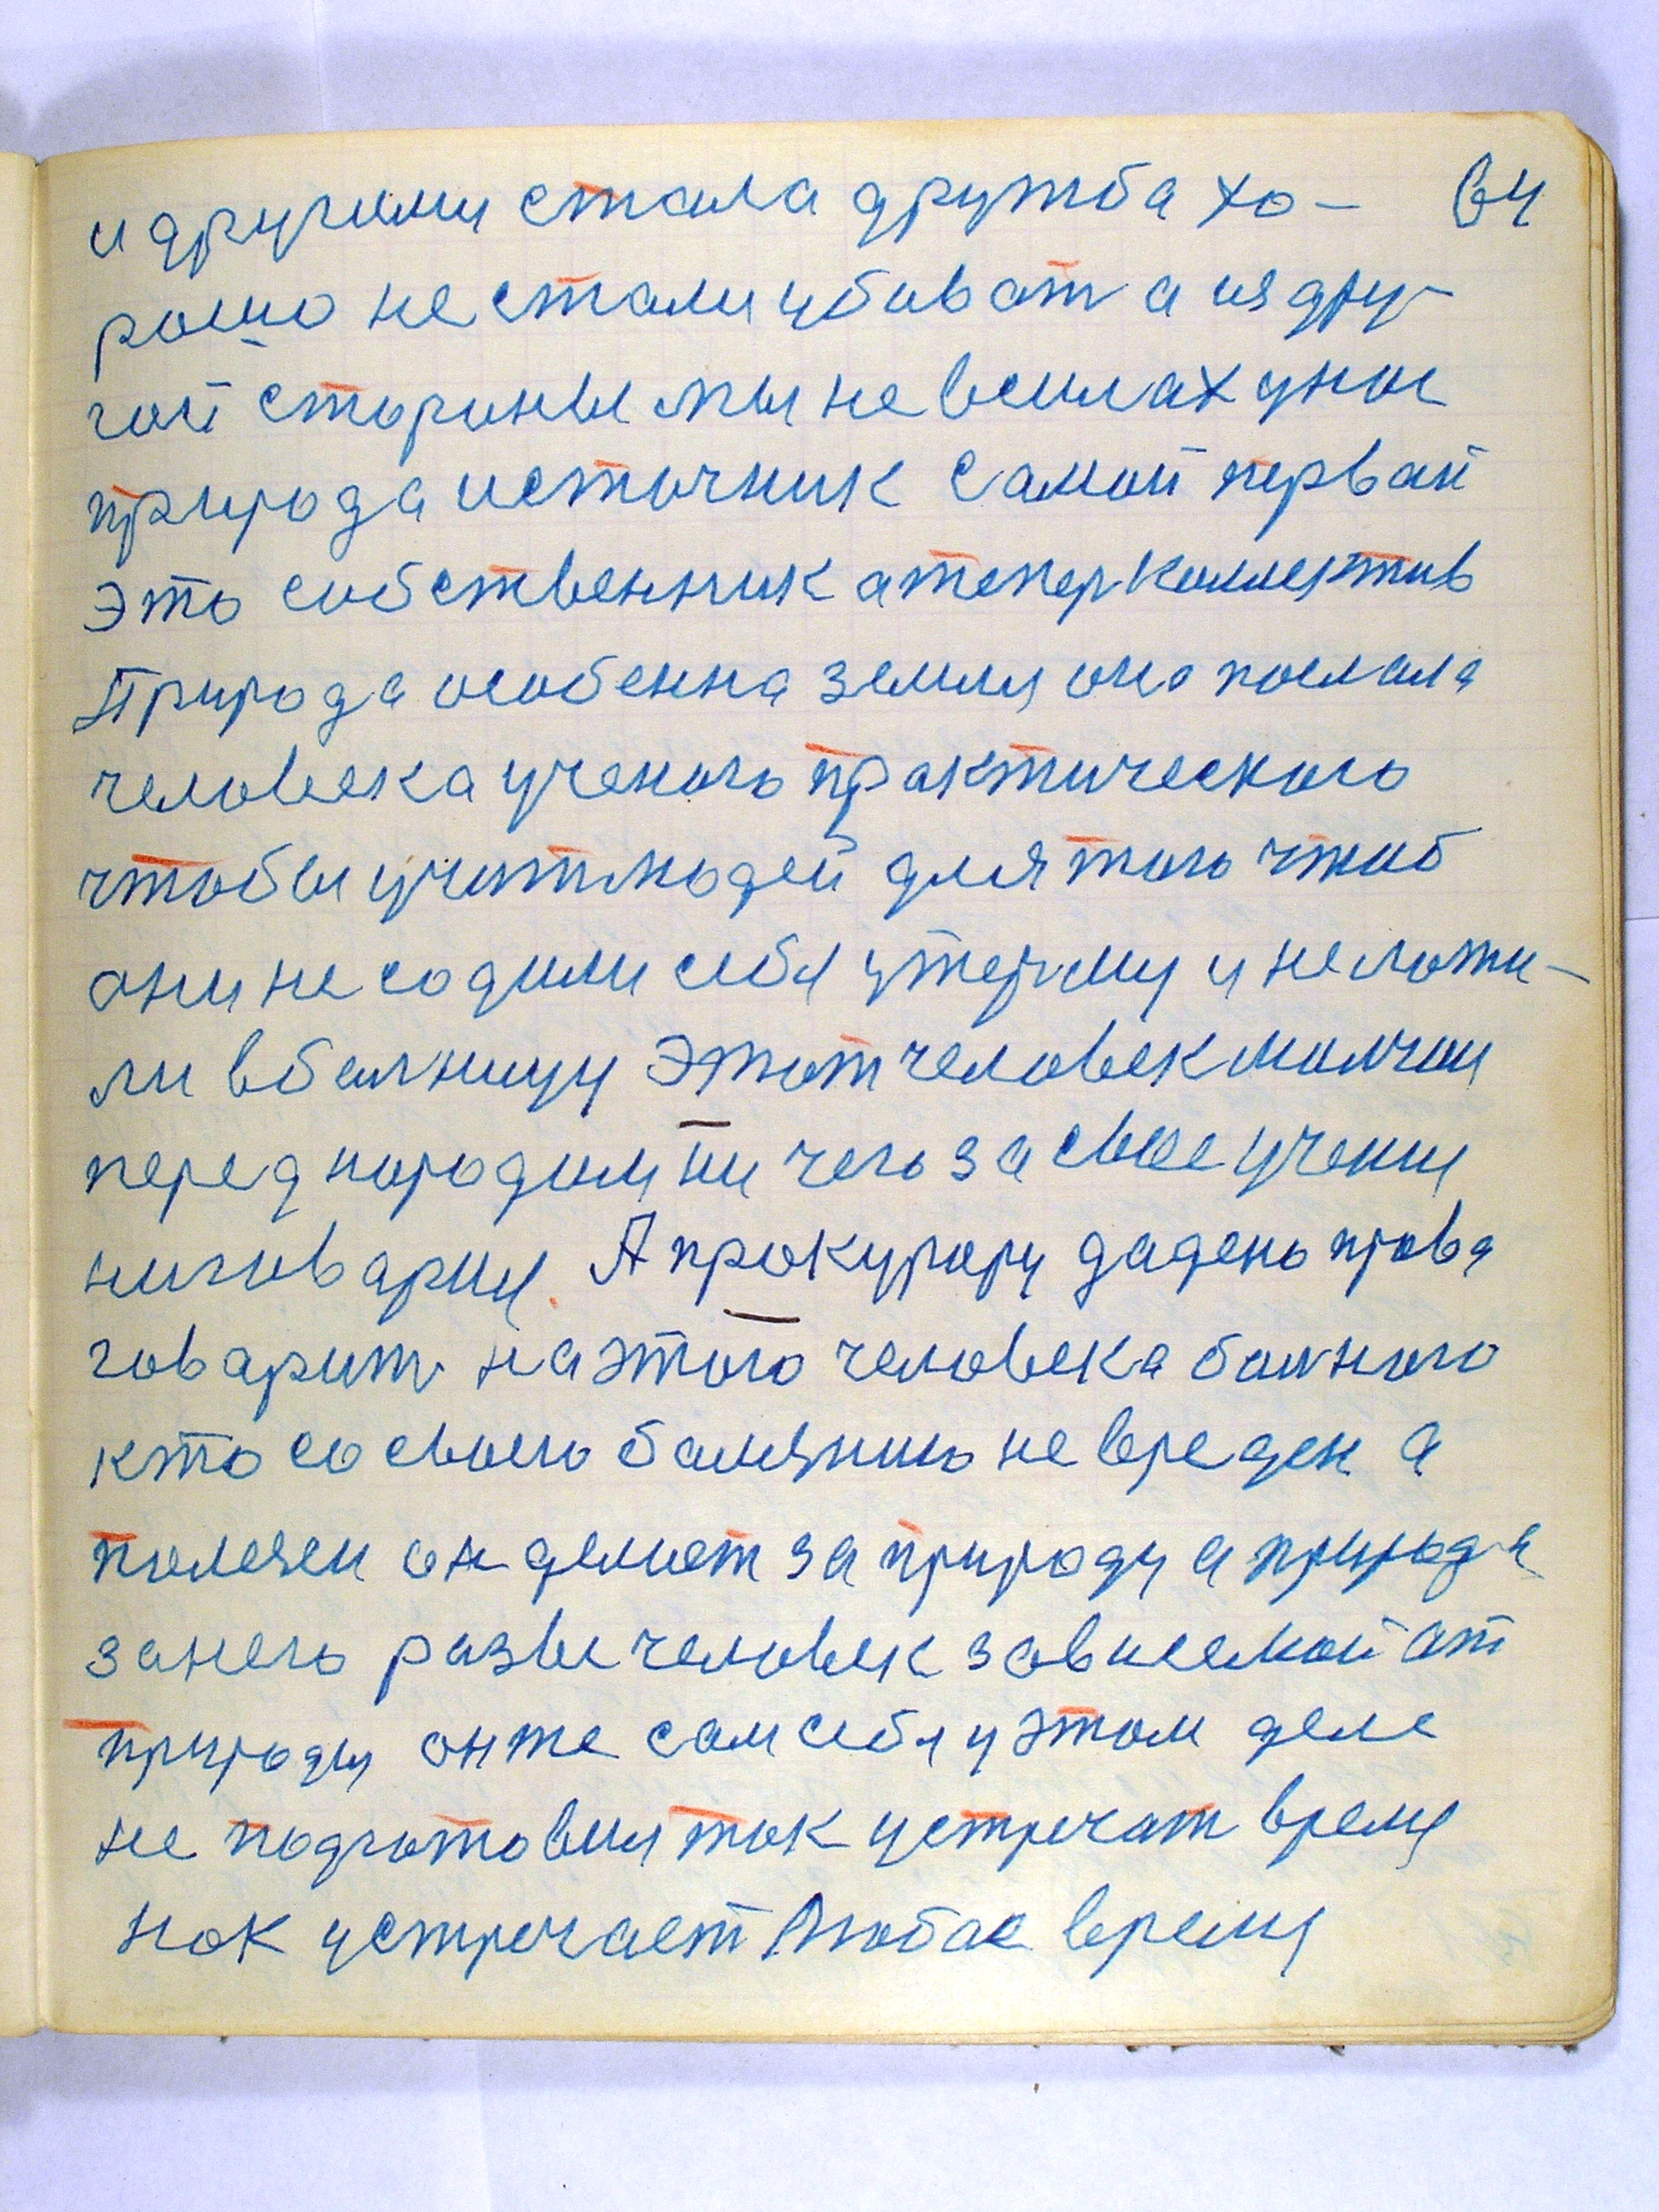 и другими стала дружба хо- 64
рошо не стали убиват а из дру-
гой стороны мы не всилах унас
природа источник самой первай
это собственник а тепер коллектив
Природа особенна земля она послала
человека ученого практического
чтобы учит людей для того чтоб
они не содили себя утюрму и не ложи-
ли в болницу Этот человек молчал
перед народом ни чего за свое учения
ни говарил. А прокурору дадено права
говарит на этого человека болного
кто со своею болезнию не вреден а
полезен он делает за природу а природа
за него разве человек зависемой от
природы он же сам себя у этом деле
не подготовил так устречат время
как устречает Любое время